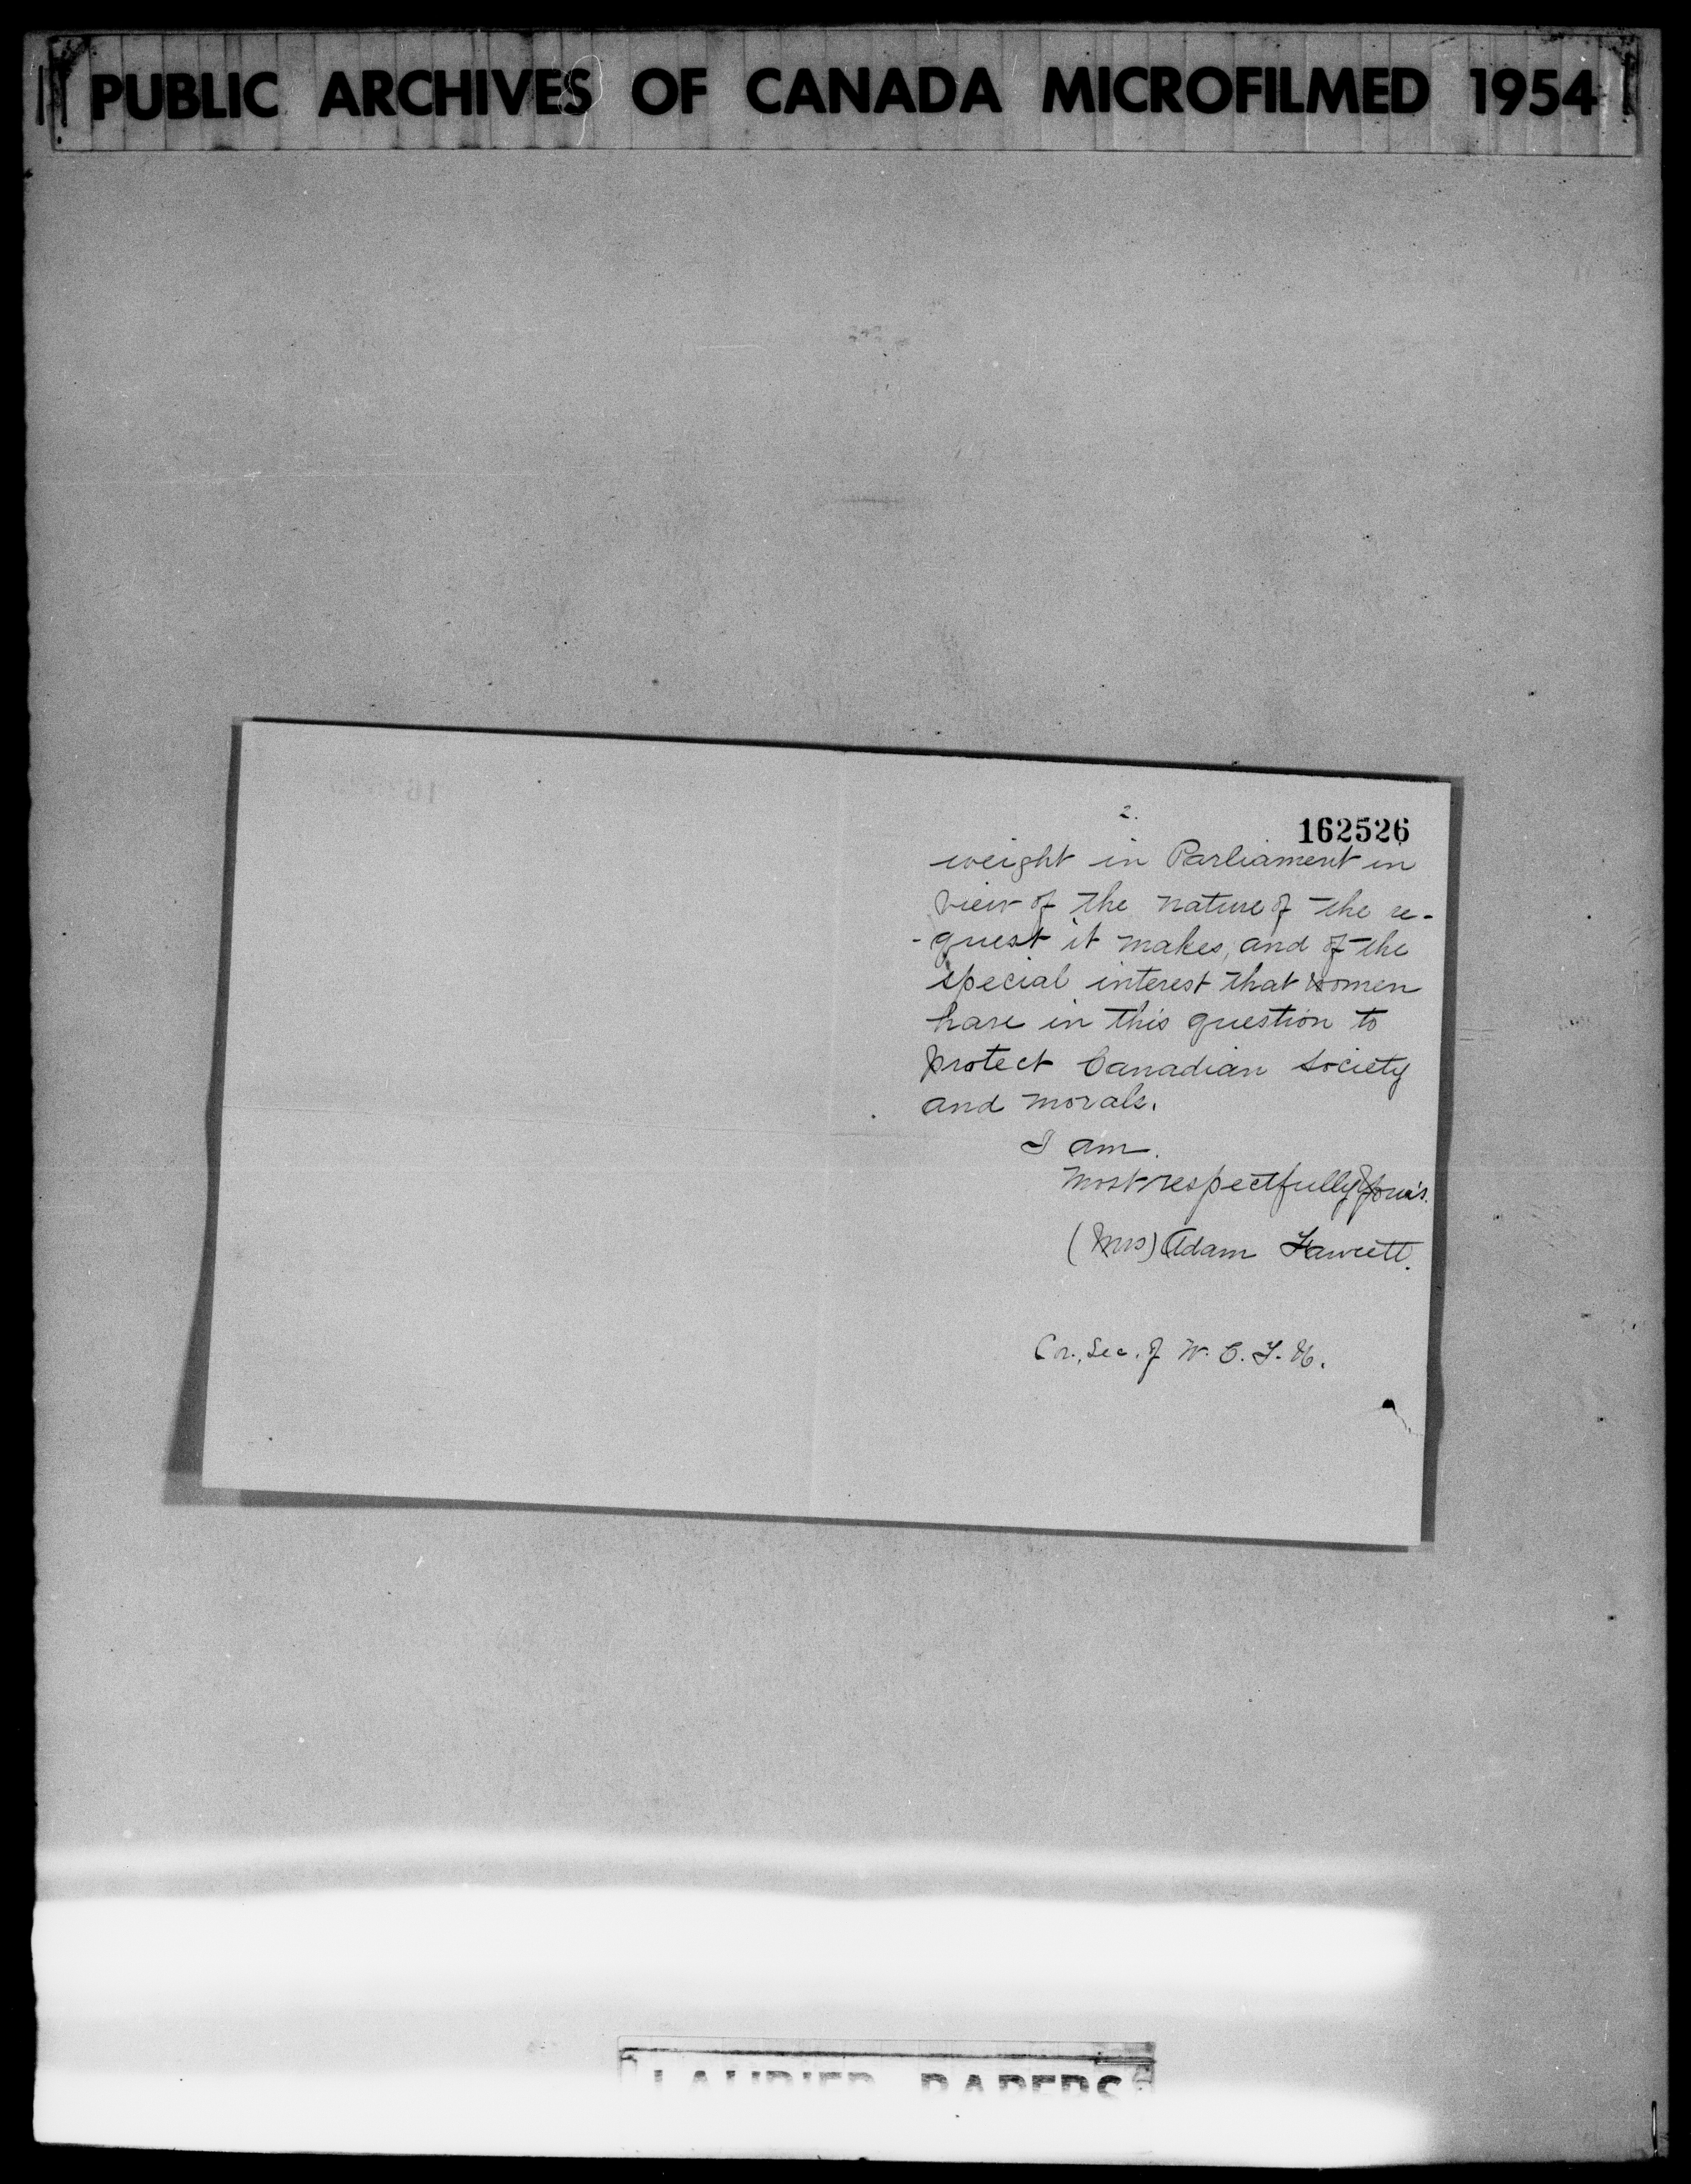 PUBLIC ARCHIVES OF CANADA MICROFILMED 1954
2.
162526
weight in Parliament in
view of the nature of the re-
-quest it makes, and of the
special interest that women
have in this question to
protect Canadian Society
and morals.
I am.
Most respectfully yours.
(Mrs) Adam Fawcett.
Cor. Sec. of W. C. T. U.
LAURIER PAPERS